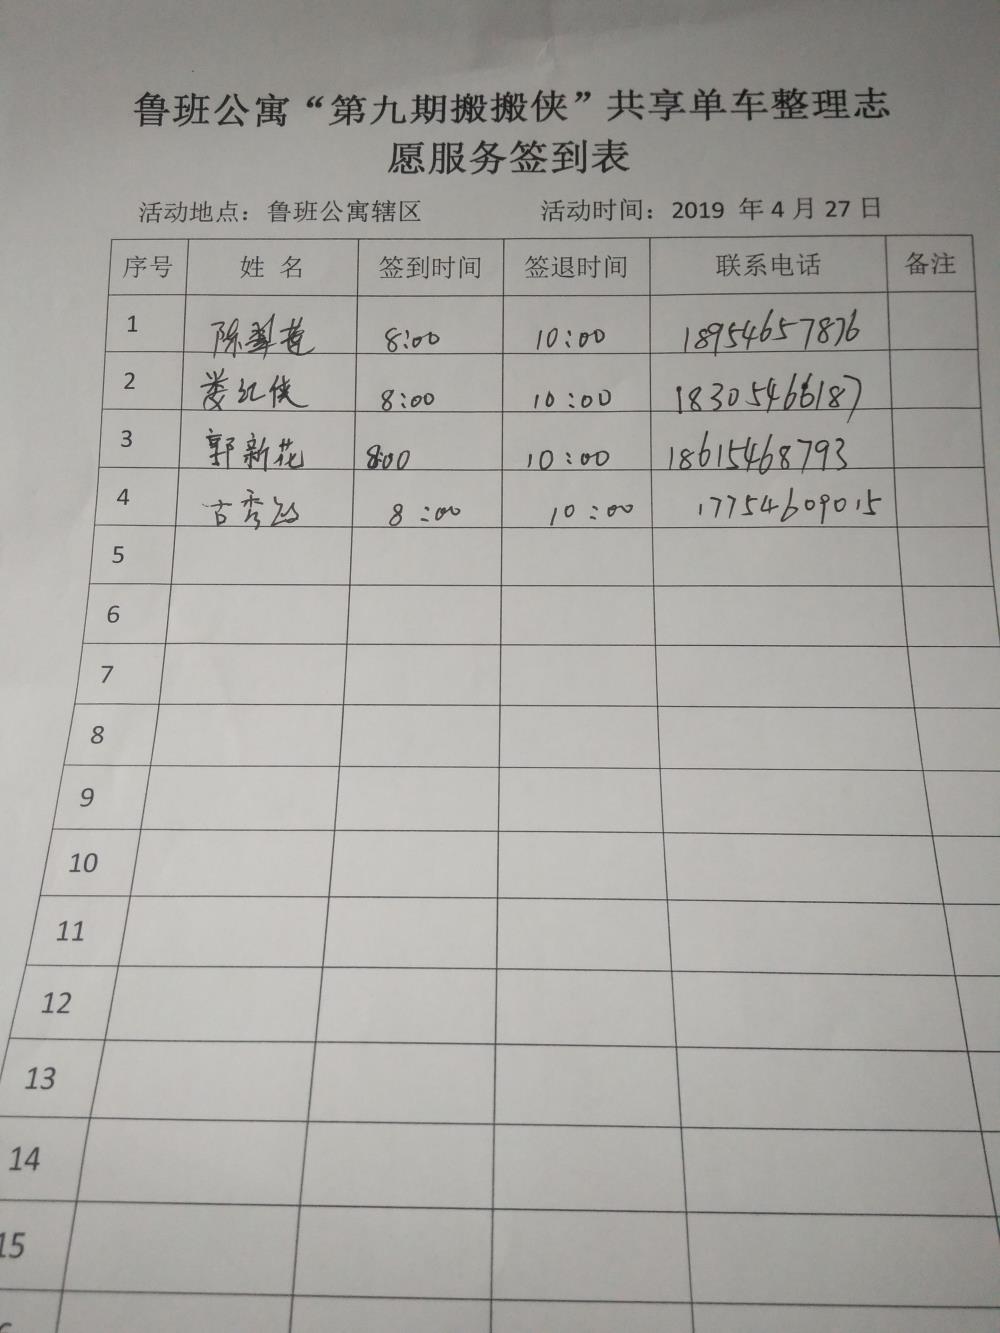 鲁班公寓“第九期搬搬侠”共享单车整理志
愿服务签到表
活动地点：鲁班公寓辖区 活动时间：2019 年 4 月 27 日
序号 姓 名 签到时间 签退时间 联系电话 备注
1 陈翠莲 8:00 10:00 18954657876
2 娄红侠 8:00 10:00 18305466187
3 郭新花 8:00 10:00 18615468793
4 古秀 8:00 10:00 17754609015
5
6
7
8
9
10
11
12
13
14
15